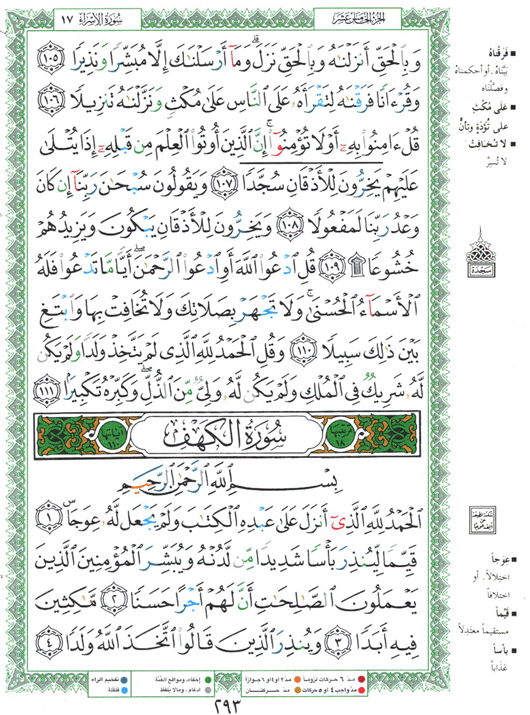 سُورَةُ الإِسْرَاء ١٧
الجزء الخامس عشر
وَبِالْحَقِّ أَنزَلْنَٰهُ وَبِالْحَقِّ نَزَلَ ۗ وَمَآ أَرْسَلْنَٰكَ إِلَّا مُبَشِّرًا وَنَذِيرًا ١٠٥
وَقُرْءَانًا فَرَقْنَٰهُ لِتَقْرَأَهُۥ عَلَى النَّاسِ عَلَىٰ مُكْثٍ وَنَزَّلْنَٰهُ تَنزِيلًا ١٠٦
قُلْ ءَامِنُوا بِهِۦٓ أَوْ لَا تُؤْمِنُوٓا ۚ إِنَّ الَّذِينَ أُوتُوا الْعِلْمَ مِن قَبْلِهِۦٓ إِذَا يُتْلَىٰ
عَلَيْهِمْ يَخِرُّونَ لِلْأَذْقَانِ سُجَّدًا ١٠٧ وَيَقُولُونَ سُبْحَٰنَ رَبِّنَآ إِن كَانَ
وَعْدُ رَبِّنَا لَمَفْعُولًا ١٠٨ وَيَخِرُّونَ لِلْأَذْقَانِ يَبْكُونَ وَيَزِيدُهُمْ
خُشُوعًا ۩ ١٠٩ قُلِ ادْعُوا اللَّهَ أَوِ ادْعُوا الرَّحْمَٰنَ ۖ أَيًّا مَّا تَدْعُوا فَلَهُ
الْأَسْمَآءُ الْحُسْنَىٰ ۚ وَلَا تَجْهَرْ بِصَلَاتِكَ وَلَا تُخَافِتْ بِهَا وَابْتَغِ
بَيْنَ ذَٰلِكَ سَبِيلًا ١١٠ وَقُلِ الْحَمْدُ لِلَّهِ الَّذِى لَمْ يَتَّخِذْ وَلَدًا وَلَمْ يَكُن
لَّهُۥ شَرِيكٌ فِى الْمُلْكِ وَلَمْ يَكُن لَّهُۥ وَلِىٌّ مِّنَ الذُّلِّ ۖ وَكَبِّرْهُ تَكْبِيرًا ١١١
ترتيبها ١٨ سُورَةُ الْكَهْفِ آياتها ١١٠
بِسْمِ اللَّهِ الرَّحْمَٰنِ الرَّحِيمِ
الْحَمْدُ لِلَّهِ الَّذِىٓ أَنزَلَ عَلَىٰ عَبْدِهِ الْكِتَٰبَ وَلَمْ يَجْعَل لَّهُۥ عِوَجَا ۜ ١
قَيِّمًا لِّيُنذِرَ بَأْسًا شَدِيدًا مِّن لَّدُنْهُ وَيُبَشِّرَ الْمُؤْمِنِينَ الَّذِينَ
يَعْمَلُونَ الصَّٰلِحَٰتِ أَنَّ لَهُمْ أَجْرًا حَسَنًا ٢ مَّٰكِثِينَ
فِيهِ أَبَدًا ٣ وَيُنذِرَ الَّذِينَ قَالُوا اتَّخَذَ اللَّهُ وَلَدًا ٤
فَرَقْنَاهُ
بَيَّنَّاهُ. أو أحكمناه
وفصَّلناه
عَلَى مُكْثٍ
على تُؤَدَةٍ وتأنٍّ
لا تُخَافِتْ
لا تُسِرَّ
سجدة
عِوَجاً
اختلالاً. أو
اختلافاً
قَيِّماً
مستقيماً معتدلاً
بَأْساً
عذاباً
مدّ ٦ حركات لزوماً مدّ ٢ أو ٤ أو ٦ جوازاً إخفاء، ومواقع الغُنَّة تفخيم الراء
مدّ واجب ٤ أو ٥ حركات مدّ حركتان ادغام، وما لا يلفظ قلقلة
٢٩٣